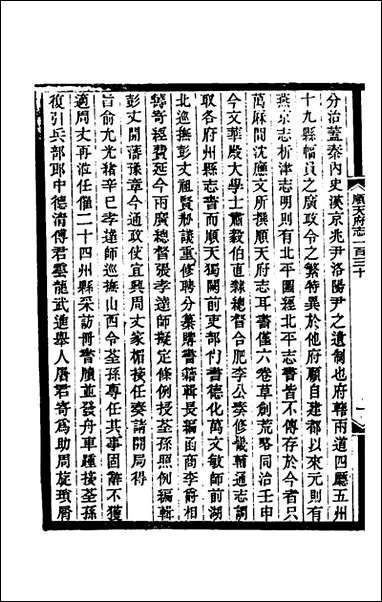 順天府志一百三十
分治蓋秦內史漢京兆尹洛陽尹之遺制也府轄兩道四廳五州
十九縣幅員之廣政令之繁特異於他府願自建都以來元則有
燕京志析津志明則有北平圖經北平志書皆不傳存於今者只
萬厤間沈應文所撰順天府志耳書僅六卷草創荒略同治壬申
今文華殿大學士肅毅伯直隸總督合肥李公奏修畿輔通志調
取各府州縣志書而順天獨闕前吏部尙書德化萬文敏師前湖
北巡撫彭丈祖賢秒議重修聘分纂購書籍輯長編函商李爵相
籌寄經費延今兩廣總督張孝達師擬定條例授荃孫照例編輯
彭丈開藩豫章今通政使宜興周丈家楣接任奏請開局得
旨俞允光緒辛巳李達師巡撫山西令荃孫專任其事固辭不獲
適周丈再涖任催二十四州縣采訪冊書牘並發舟車踵接荃孫
復引兵部郎中德清傅君雲龍武進舉人屠君寄爲助周旋瑣屑